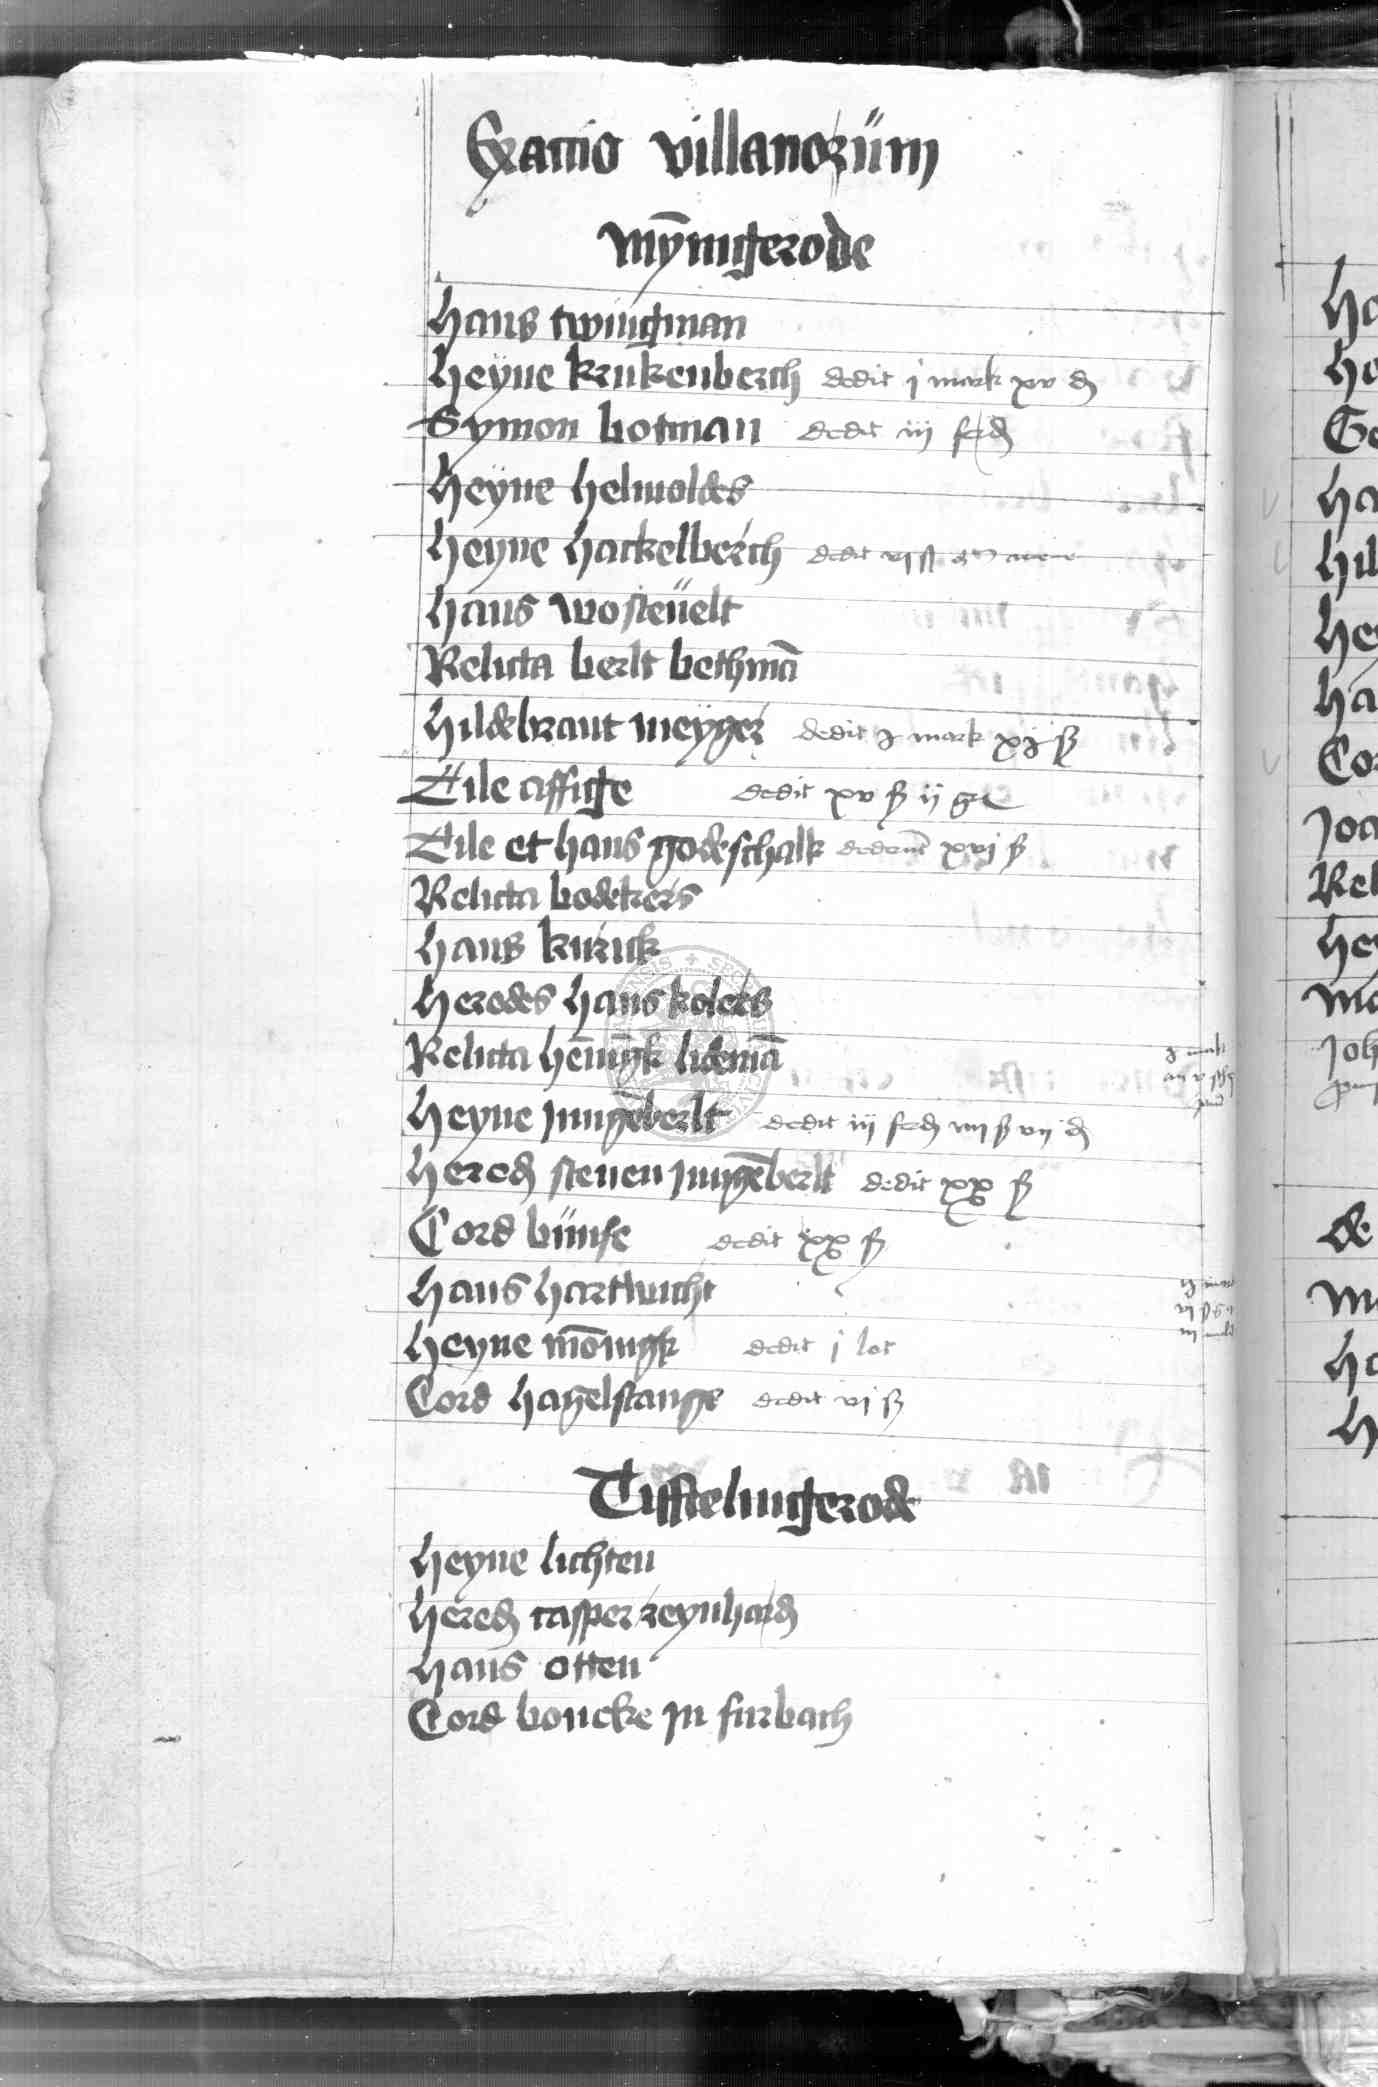 Exactio villanorüm
Mȳnigerode
Hans twingman
Heyne krukenberch dedit j mark xv ₰
Symon botman dedit iij ferd
Heyne helmoldes
Heyne hackelberch dedit
Hans wosteüelt
Relicta berlt bethmā
Hildebrant meyger dedit j mark xj ß
Tile affige dedit xv ß ij
Tile et hans godeschalk dederūt xvj ß
Relicta bodekers
Hans kurick
Heredes hans kolers
Relicta hēnigk lidemā
Heyne jungēberlt dedit iij ferd iiij ß vij ₰
Hered steuen jungēberlt dedit xx ß
Cord bünse dedit xx ß
Hans hartwicht
Heyne mōnigk dedit j lot
Cord hagelstange dedit vj ß
Tiftelingerode
Heyne lichten
Hered casper reynhard
Hans otten
Cord boncke jn furbach